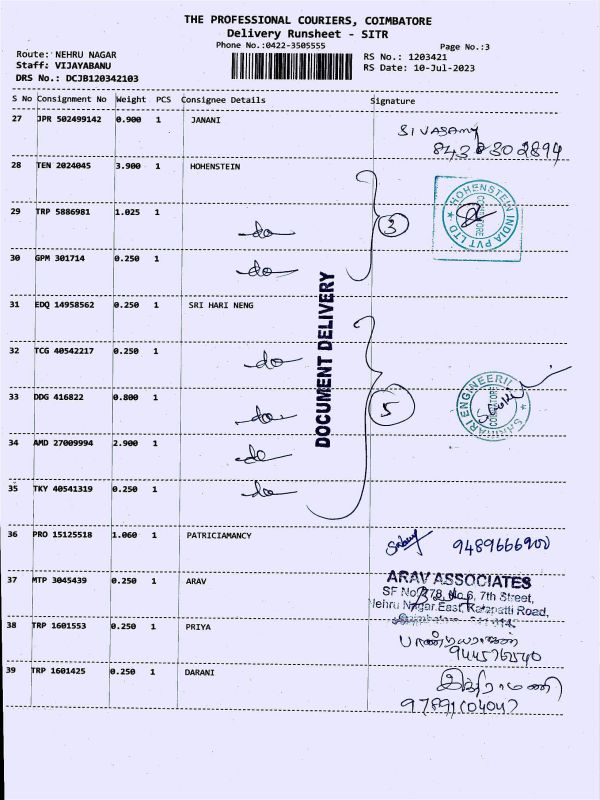 THE PROFESSIONAL COURIERS, COIMBATORE
Delivery Runsheet - SITR
Phone No.:0422-3505555
Page No.:3
Route: NEHRU NAGAR
RS No.: 1203421
Staff: VIJAYABANU
RS Date: 10-Jul-2023
DRS No.: DCJB120342103
S No Consignment No Weight PCS Consignee Details Signature
27 JPR 502499142 0.900 1 JANANI SIVASAMY
28 TEN 2024045 3.900 1 HOHENSTEIN
HOHENSTEIN INDIA PVT LTD
COIMBATORE
29 TRP 5886981 1.025 1 do
3
30 GPM 301714 0.250 1 do
DOCUMENT DELIVERY
31 EDQ 14958562 0.250 1 SRI HARI NENG
32 TCG 40542217 0.250 1 do
33 DDG 416822 0.800 1 do
5
SRI HARI ENGINEERII
COIMBATORE
34 AMD 27009994 2.900 1 do
35 TKY 40541319 0.250 1 do
36 PRO 15125518 1.060 1 PATRICIAMANCY 9489666900
37 MTP 3045439 0.250 1 ARAV ARAV ASSOCIATES
SF No. 378, No.6, 7th Street,
Nehru Nagar East, Kalapatti Road,
38 TRP 1601553 0.250 1 PRIYA
39 TRP 1601425 0.250 1 DARANI இந்திராமணி